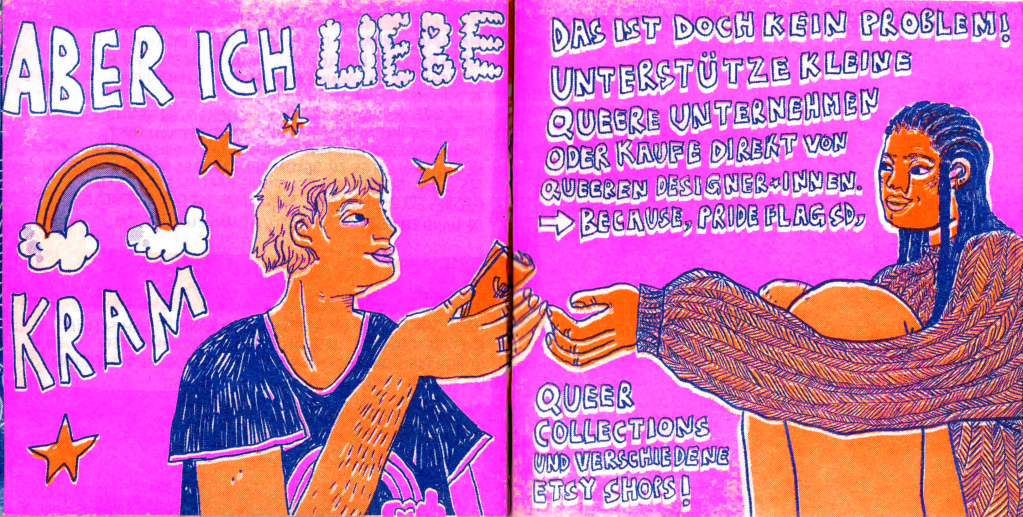 ABER ICH LIEBE
KRAM
DAS IST DOCH KEIN PROBLEM!
UNTERSTÜTZE KLEINE
QUEERE UNTERNEHMEN
ODER KAUFE DIREKT VON
QUEEREN DESIGNER*INNEN.
→ BECAUSE, PRIDE FLAGSD,
QUEER
COLLECTIONS
UND VERSCHIEDENE
ETSY SHOPS!